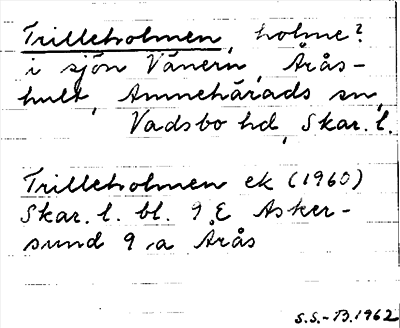 Trilleholmen, holme?
i sjön Vänern, Årås-
hult, Amnehärads sn,
Vadsbo hd, Skar. l.
Trilleholmen ek (1960)
Skar. l. bl. 9 E Asker-
sund 9 a Årås
S.S.-B. 1962